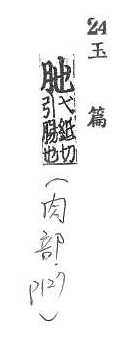 24 玉篇
肔 弋紙切
引腸也
(肉部. p127)